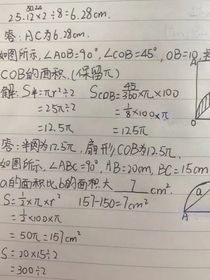 25.12×2÷8=6.28cm.
答:AC为6.28cm.
如图所示,∠AOB=90°,∠COB=45°,OB=10
COB的面积.(保留π)
解:S半=πr²÷2 S COB=45/360×π×100
=25π÷2 =1/8×100×π
=12.5π =12.5π
答:半圆为12.5π,扇形COB为12.5π.
如图所示,∠ABC=90°,AB=20cm,BC=15cm
a的面积比b的面积大 7 cm².
S=1/2×π×r² 157-150=7cm²
=1/2×100×π
=50π=157cm²
S=20×15÷2
=300÷2
A
a